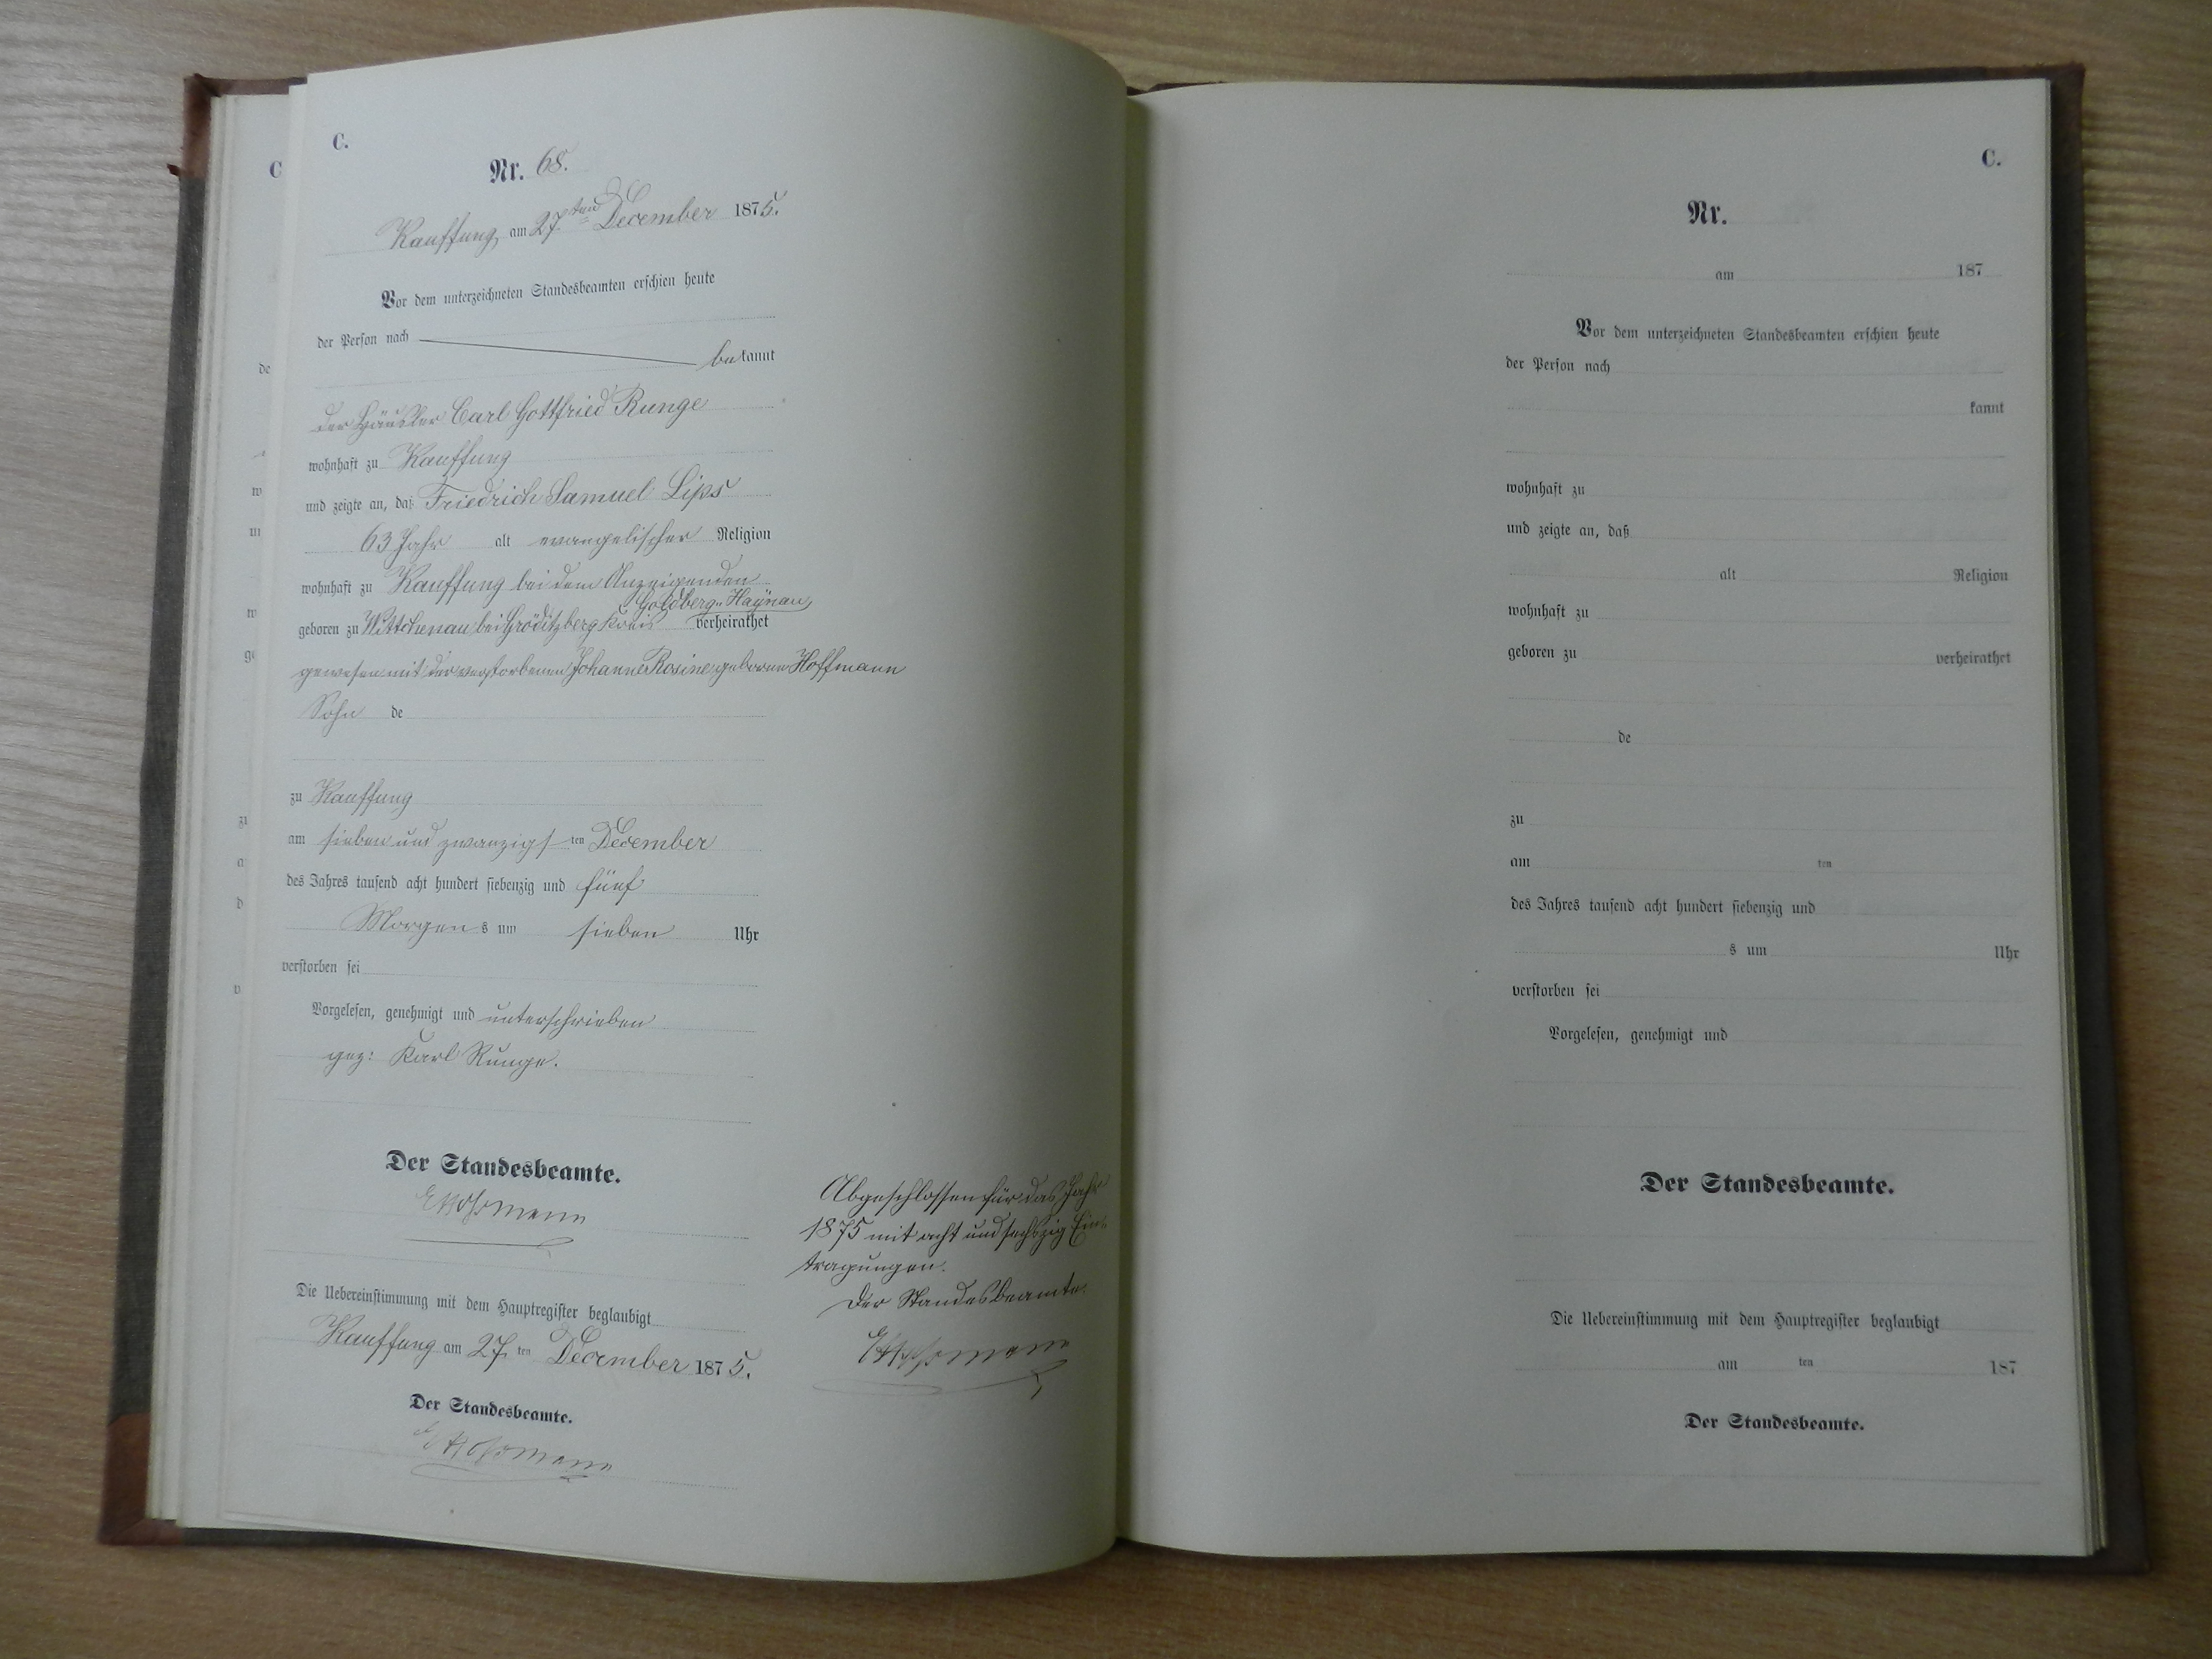 C.
Nr. 68.
Kauffung, am 27ten December 1875.
Vor dem unterzeichneten Standesbeamten erschien heute
der Person nach
bekannt
der Häusler Carl Gottfried Runge
wohnhaft zu Kauffung
und zeigte an, daß Friedrich Samuel Lips
63 Jahr alt evangelischer Religion
wohnhaft zu Kauffung bei dem Anzeigenden
Goldberg-Haynau,
geboren zu Wittchenau bei Gröditzberg Kreis verheirathet
gewesen mit der verstorbenen Johanne Rosine geborne Hoffmann
Sohn de
zu Kauffung
am sieben und zwanzigsten December
des Jahres tausend acht hundert siebenzig und fünf
Morgens um sieben Uhr
verstorben sei
Vorgelesen, genehmigt und unterschrieben
gez: Karl Runge.
Der Standesbeamte.
Die Uebereinstimmung mit dem Hauptregister beglaubigt
Kauffung am 27ten December 1875.
Der Standesbeamte.
Abgeschlossen für das Jahr
1875 mit acht und sechszig Ein-
tragungen.
Der Standesbeamte.
C.
Nr.
am 187
Vor dem unterzeichneten Standesbeamten erschien heute
der Person nach
kannt
wohnhaft zu
und zeigte an, daß
alt Religion
wohnhaft zu
geboren zu verheirathet
de
zu
am ten
des Jahres tausend acht hundert siebenzig und
s um Uhr
verstorben sei
Vorgelesen, genehmigt und
Der Standesbeamte.
Die Uebereinstimmung mit dem Hauptregister beglaubigt
am ten 187
Der Standesbeamte.